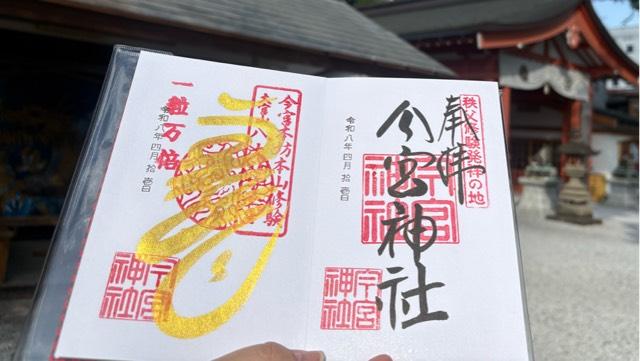 奉拝
秩父修験発祥の地
今宮神社
令和八年四月拾壱日
今宮神社
今宮神社
一粒万倍
令和八年四月拾壱日
今宮神社